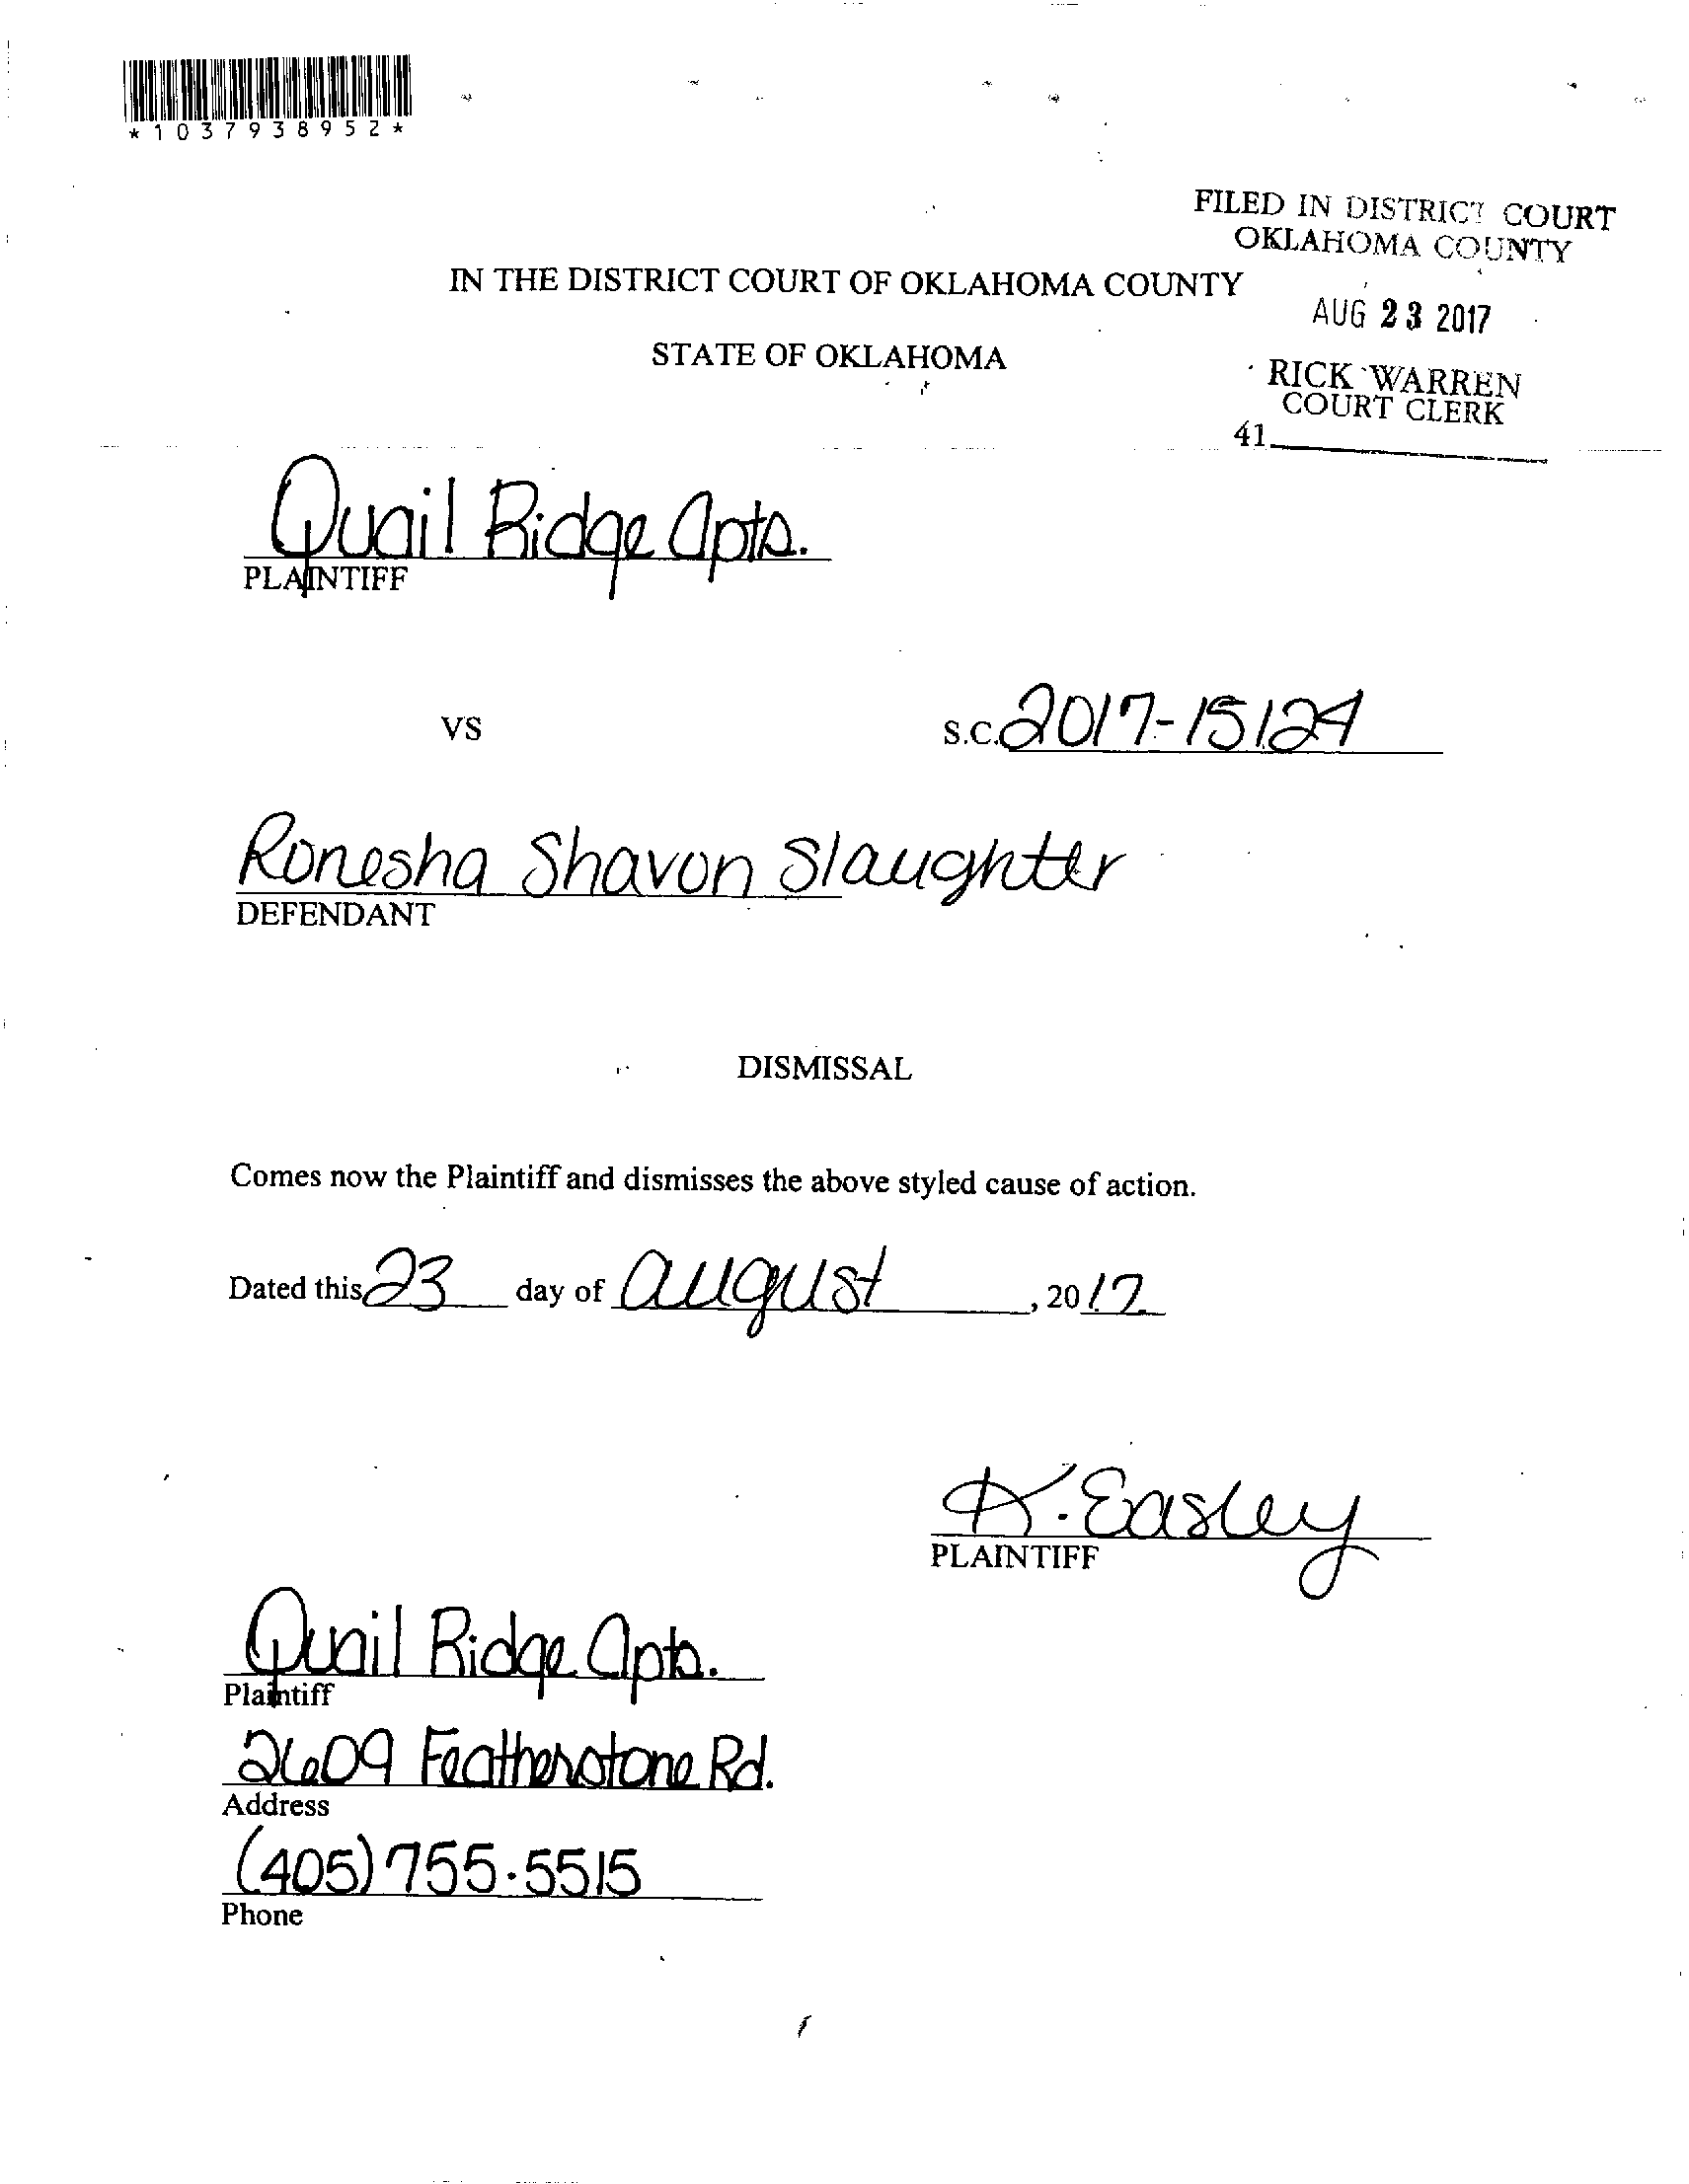 *1037938952*
FILED IN DISTRICT COURT
OKLAHOMA COUNTY
IN THE DISTRICT COURT OF OKLAHOMA COUNTY
AUG 23 2017
STATE OF OKLAHOMA
RICK WARREN
COURT CLERK
41
Quail Ridge Apts.
PLAINTIFF
VS
S.C. 2017-15124
Ronesha Shavon Slaughter
DEFENDANT
DISMISSAL
Comes now the Plaintiff and dismisses the above styled cause of action.
Dated this 23 day of august, 2017
K. Easley
PLAINTIFF
Quail Ridge Apts.
Plaintiff
2609 Featherstone Rd.
Address
(405) 755-5515
Phone